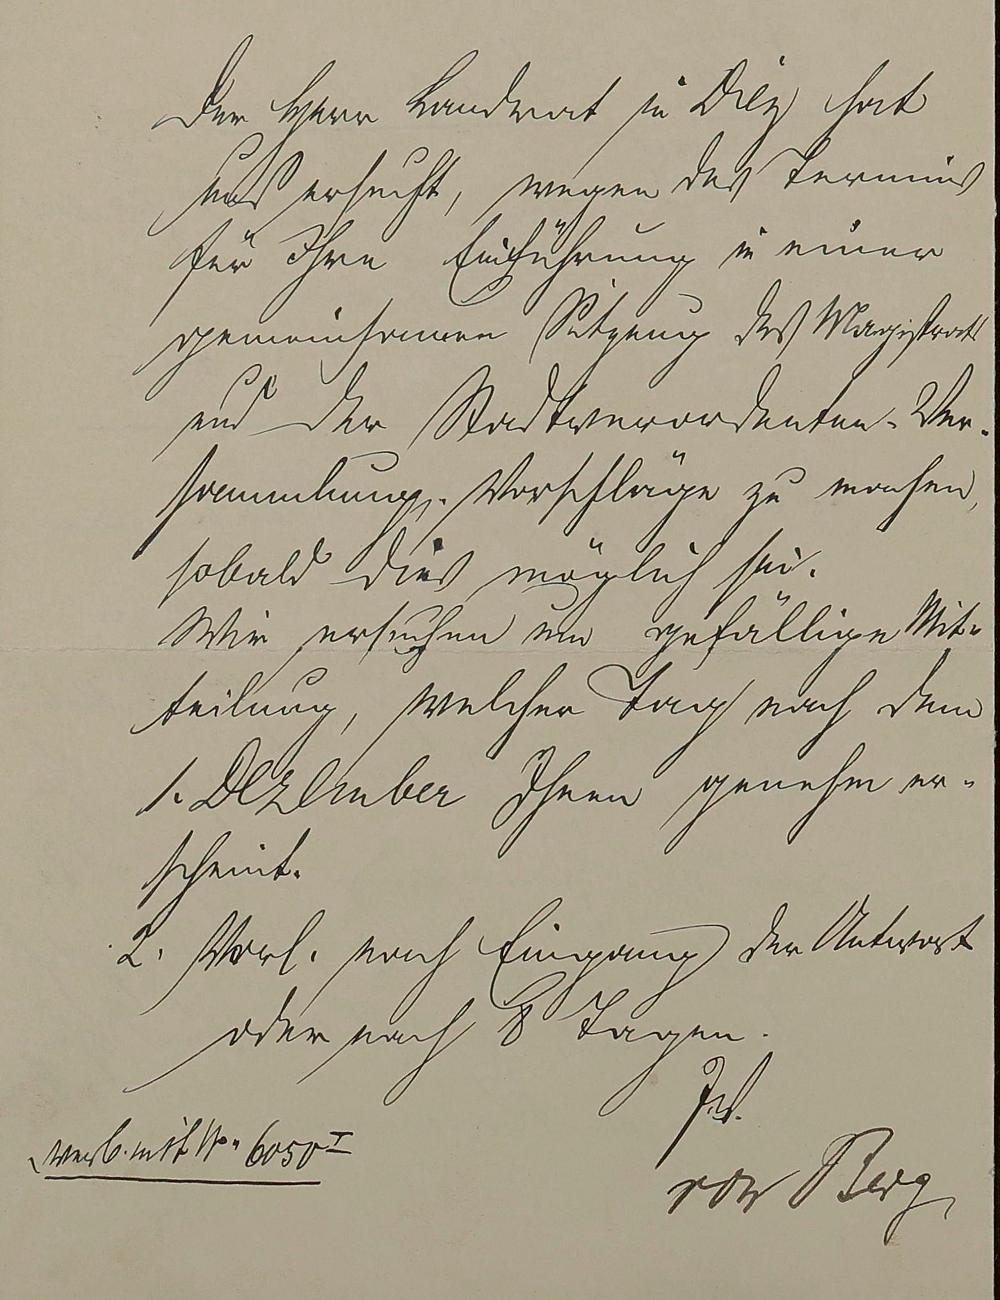 Der Herr Landrat in Diez hat
uns ersucht, wegen des Termins
für Ihre Einführung in einer
gemeinsamen Sitzung des Magistrats
und der Stadtverordneten-Ver-
sammlung Vorschläge zu machen,
sobald dies möglich sei.
Wir ersuchen um gefällige Mit-
teilung, welcher Tag nach dem
1. Dezember Ihnen genehm er-
scheint.
2. Vorl. nach Eingang der Antwort
oder nach 8 Tagen.
von Berg
mit No 6050 I